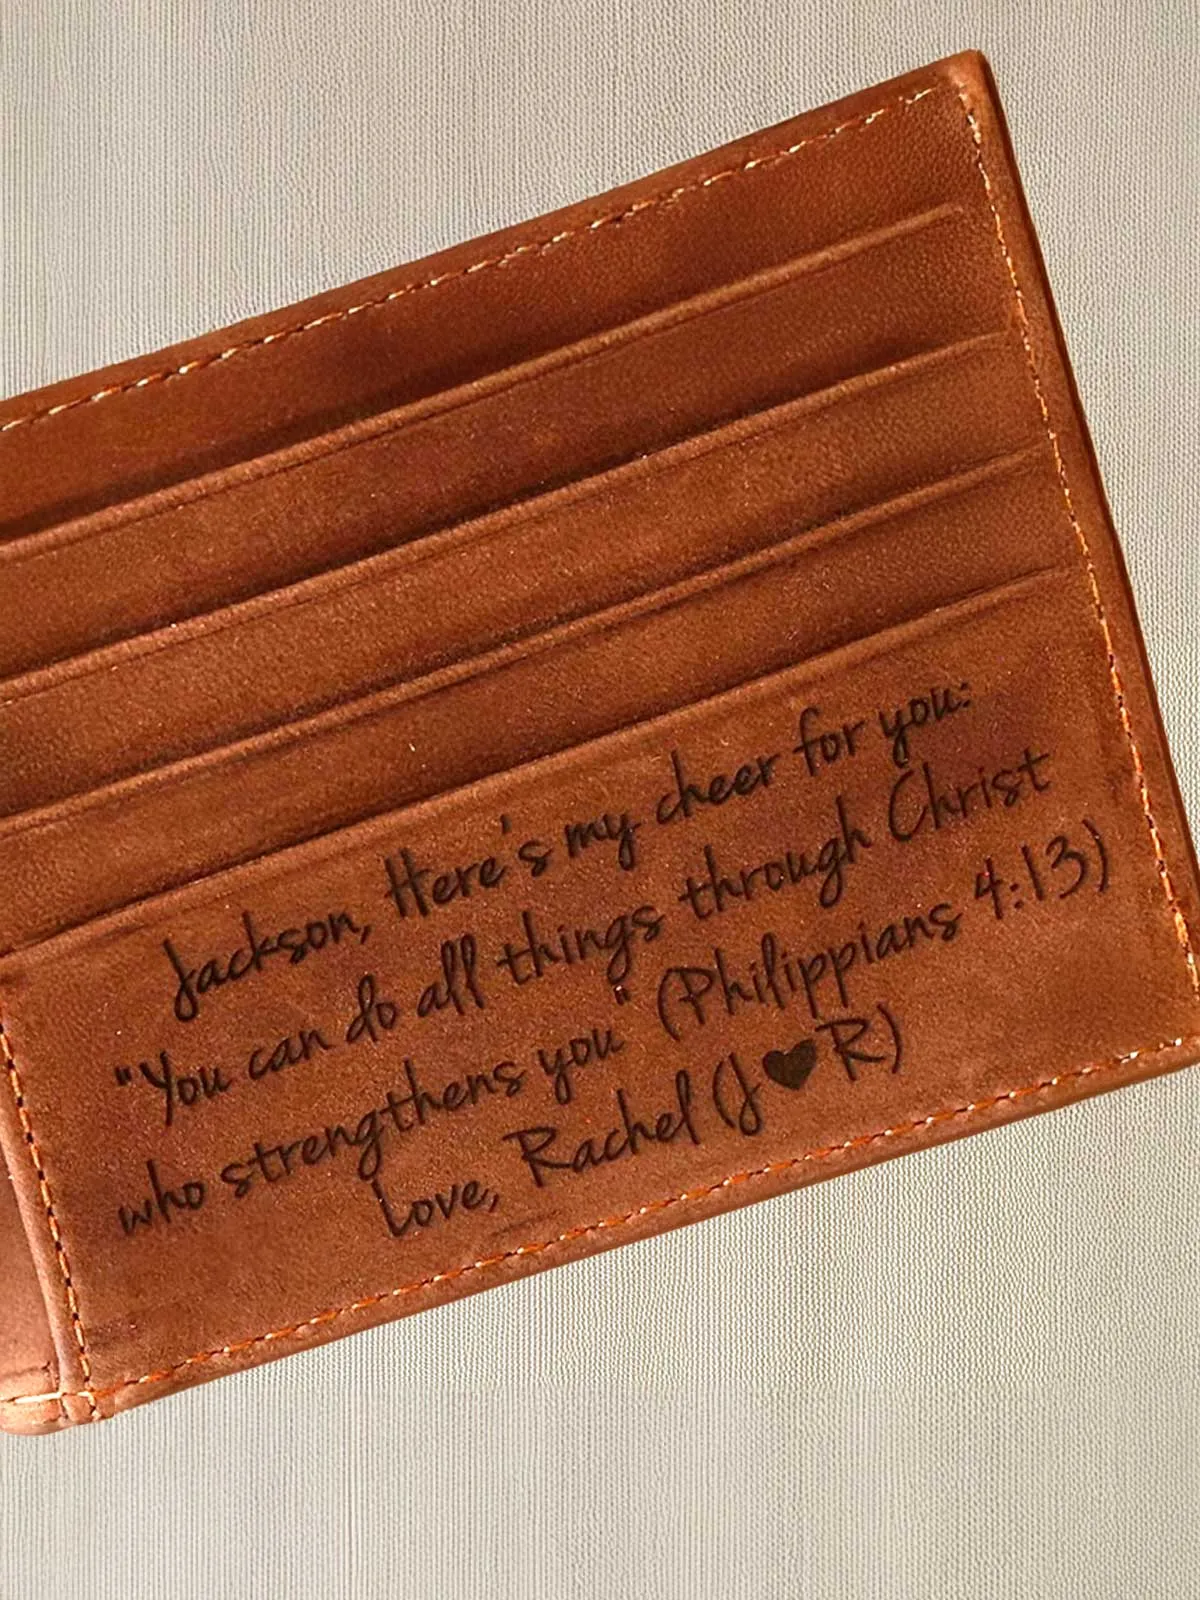 Jackson, Here's my cheer for you:
"You can do all things through Christ
who strengthens you" (Philippians 4:13)
Love, Rachel (J♥R)